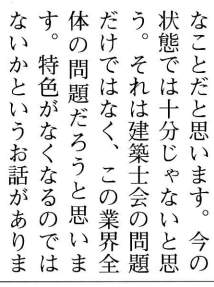 なことだと思います。今の
状態では十分じゃないと思
う。それは建築士会の問題
だけではなく、この業界全
体の問題だろうと思いま
す。特色がなくなるのでは
ないかというお話がありま